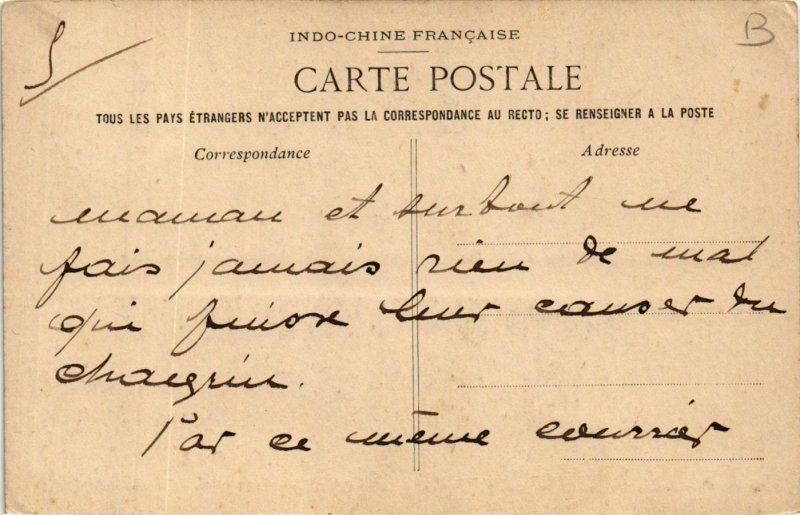 5
B
INDO-CHINE FRANÇAISE
CARTE POSTALE
TOUS LES PAYS ÉTRANGERS N'ACCEPTENT PAS LA CORRESPONDANCE AU RECTO; SE RENSEIGNER A LA POSTE
Correspondance
Adresse
maman et surtout ne
fais jamais rien de mal
qui puisse leur causer du
chagrin.
Par ce même courrier